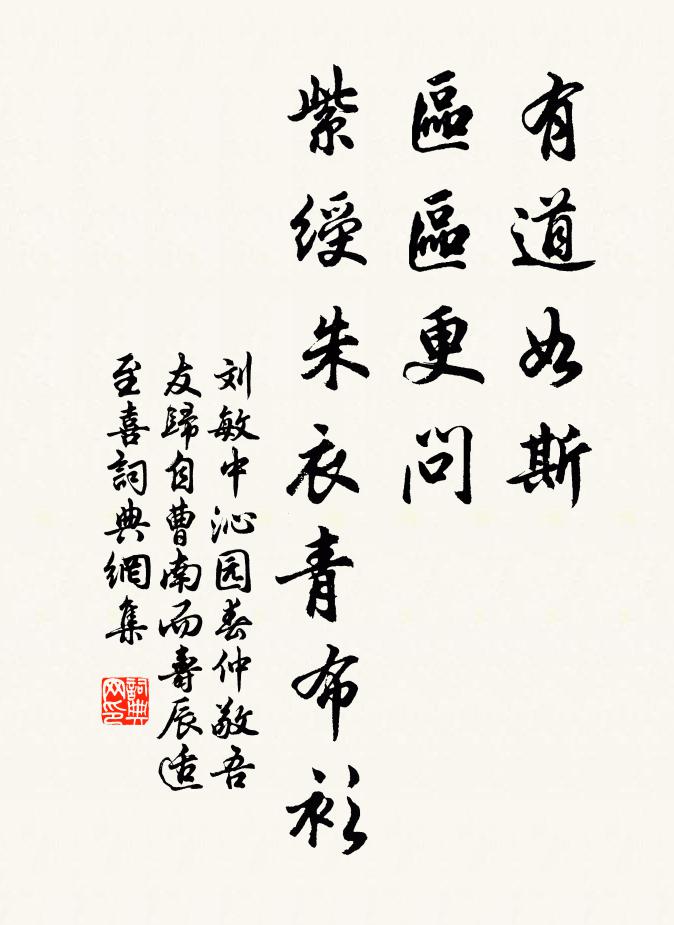 有道如斯
區區更問
紫綬朱衣青布衫
刘敏中沁园春仲敬吾
友歸自曹南而壽辰适
至喜詞典網集
詞典網印